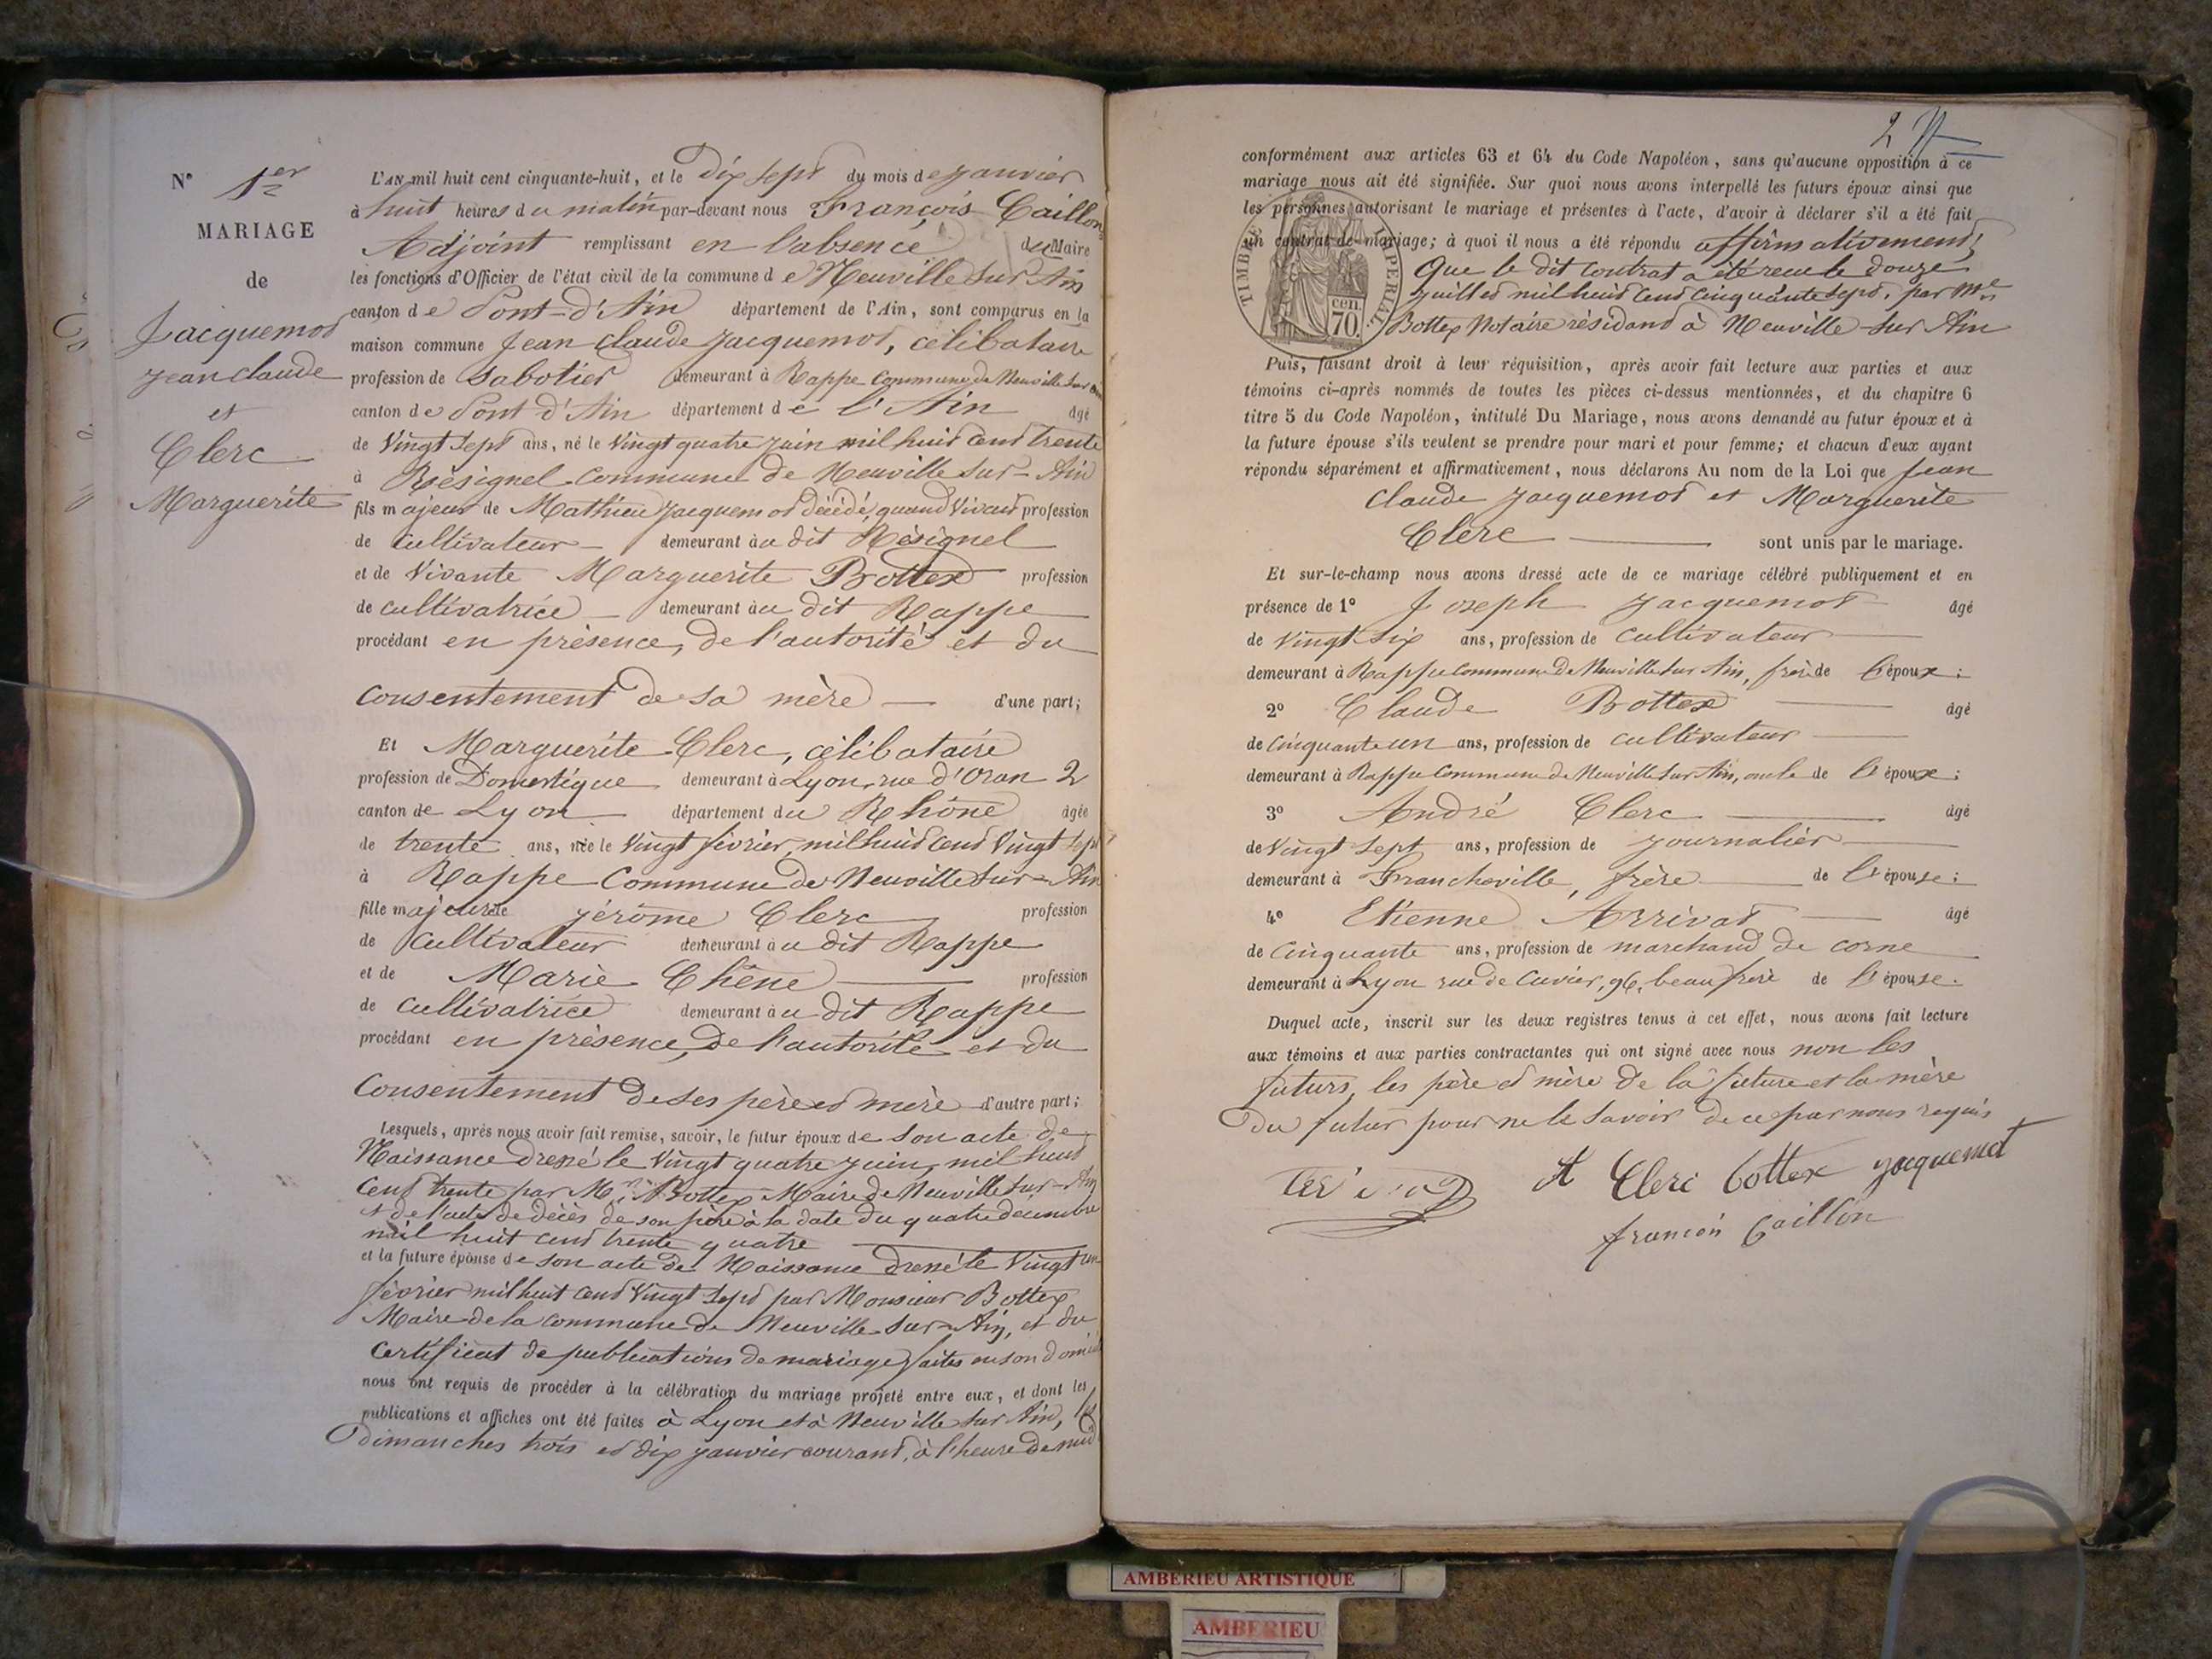 N° 1er
MARIAGE
de
Jacquemot
Jean Claude
et
Clerc
Marguerite
L'AN mil huit cent cinquante-huit, et le dix sept du mois de janvier
à huit heures du matin par-devant nous François Caillon
Adjoint remplissant en l'absence du Maire
les fonctions d'Officier de l'état civil de la commune de Neuville sur Ain
canton de Pont-d'Ain département de l'Ain, sont comparus en la
maison commune Jean Claude Jacquemot, célibataire
profession de Sabotier demeurant à Rappe Commune de Neuville sur Ain
canton de Pont d'Ain département de l'Ain âgé
de Vingt sept ans, né le Vingt quatre juin mil huit cent trente
à Résignel Commune de Neuville sur-Ain
fils majeur de Mathieu Jacquemot décédé, quand Vivait profession
de Cultivateur demeurant au dit Résignel
et de Vivante Marguerite Bottex profession
de cultivatrice demeurant au dit Rappe
procédant en présence, de l'autorité et du
Consentement de sa mère d'une part;
Et Marguerite Clerc, célibataire
profession de Domestique demeurant à Lyon, rue d'Oran 2
canton de Lyon département du Rhône âgée
de trente ans, née le Vingt février mil huit cent Vingt sept
à Rappe Commune de Neuville sur-Ain
fille majeure de Jérôme Clerc profession
de Cultivateur demeurant au dit Rappe
et de Marie Chêne profession
de Cultivatrice demeurant au dit Rappe
procédant en présence, de l'autorité et du
Consentement de ses père et mère d'autre part;
Lesquels, après nous avoir fait remise, savoir, le futur époux de son acte de
Naissance dressé le Vingt quatre juin, mil huit
Cent trente par Mr Bottex Maire de Neuville sur-Ain
et de l'acte de décès de son père à la date du quatre décembre
mil huit cent trente quatre
et la future épouse de son acte de Naissance dressé le Vingt un
février mil huit cent Vingt sept par Monsieur Bottex
Maire de la commune de Neuville sur-Ain, et du
Certificat de publications de mariage faites en son domicile
nous ont requis de procéder à la célébration du mariage projeté entre eux, et dont les
publications et affiches ont été faites à Lyon et à Neuville sur Ain, les
dimanches trois et dix janvier courant, à l'heure de midi
2
conformément aux articles 63 et 64 du Code Napoléon, sans qu'aucune opposition à ce
mariage nous ait été signifiée. Sur quoi nous avons interpellé les futurs époux ainsi que
les personnes autorisant le mariage et présentes à l'acte, d'avoir à déclarer s'il a été fait
un contrat de mariage; à quoi il nous a été répondu affirmativement,
Que le dit Contrat a été reçu le douze
juillet mil huit cent cinquante sept, par Me
Bottex Notaire résidant à Neuville-sur Ain
TIMBRE IMPERIAL
cen. 70.
Puis, faisant droit à leur réquisition, après avoir fait lecture aux parties et aux
témoins ci-après nommés de toutes les pièces ci-dessus mentionnées, et du chapitre 6
titre 5 du Code Napoléon, intitulé Du Mariage, nous avons demandé au futur époux et à
la future épouse s'ils veulent se prendre pour mari et pour femme; et chacun d'eux ayant
répondu séparément et affirmativement, nous déclarons Au nom de la Loi que Jean
Claude Jacquemot et Marguerite
Clerc sont unis par le mariage.
Et sur-le-champ nous avons dressé acte de ce mariage célébré publiquement et en
présence de 1° Joseph Jacquemot âgé
de Vingt six ans, profession de Cultivateur
demeurant à Rappe Commune de Neuville sur Ain, frère de l'époux;
2° Claude Bottex âgé
de Cinquante un ans, profession de Cultivateur
demeurant à Rappe Commune de Neuville sur Ain, oncle de l'époux;
3° André Clerc âgé
de Vingt sept ans, profession de journalier
demeurant à Francheville, frère de l'épouse;
4° Etienne Arrivat âgé
de Cinquante ans, profession de marchand de corne
demeurant à Lyon rue de Cuvier, 96, beau frère de l'épouse.
Duquel acte, inscrit sur les deux registres tenus à cet effet, nous avons fait lecture
aux témoins et aux parties contractantes qui ont signé avec nous non les
futurs, les père et mère de la future et la mère
du futur pour ne le savoir de ce par nous requis
A Clerc bottex jacquemet
françois Caillon
AMBERIEU ARTISTIQUE
AMBERIEU